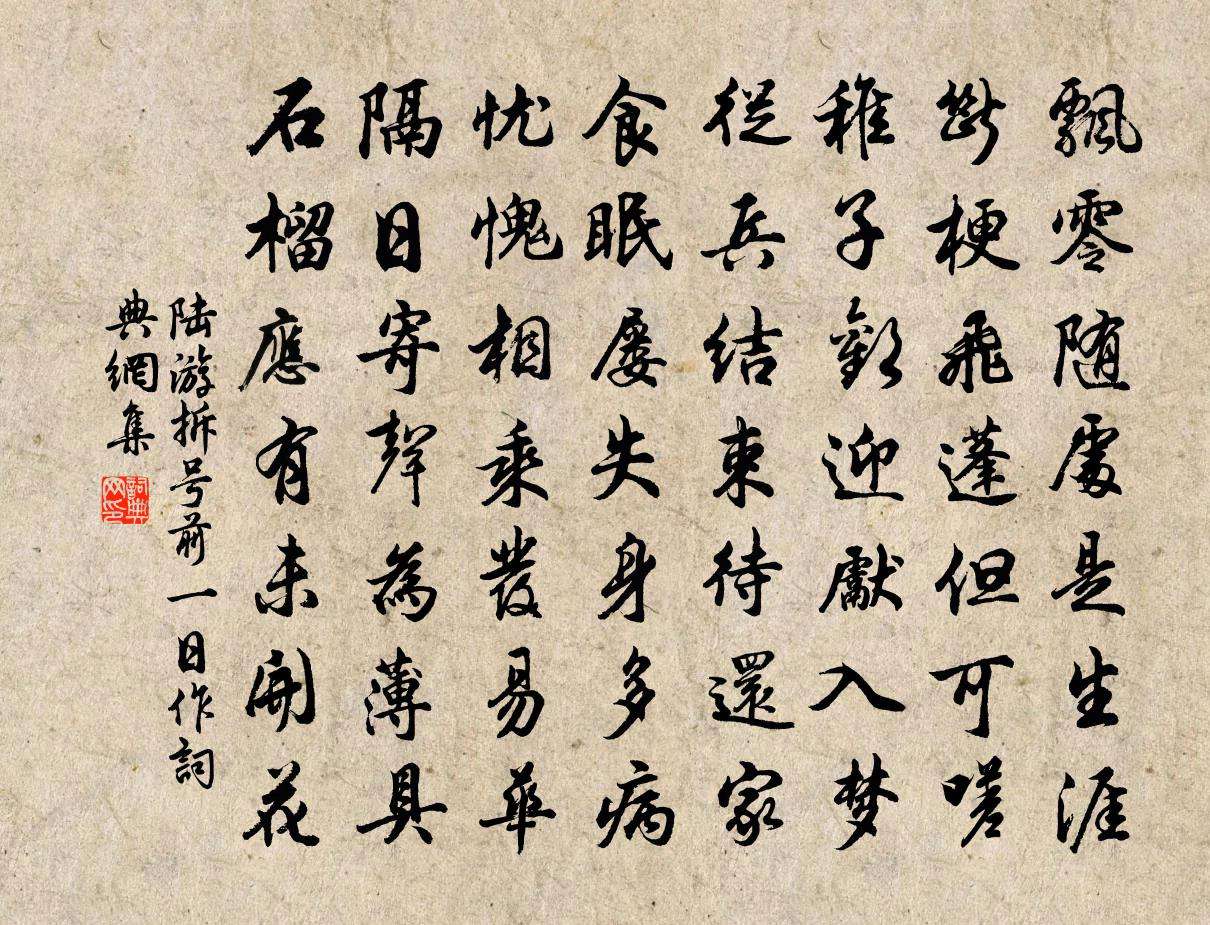 飄零随處是生涯
斷梗飛蓬但可嗟
稚子歡迎獻入梦
從兵結束待還家
食眠屡失身多病
忧愧相乘髮易華
隔日寄聲為薄具
石榴應有未開花
陆游拆号前一日作詞
典網集
詞典网印